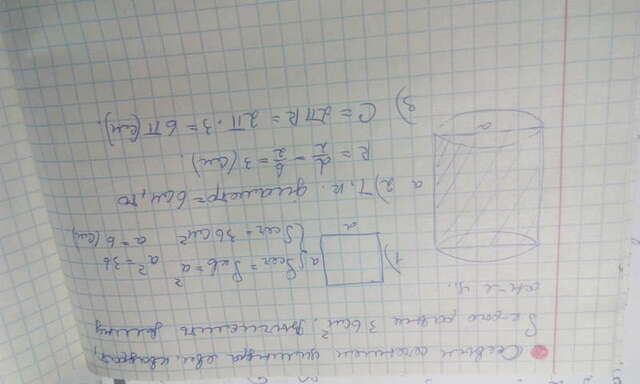 Осевым сечением цилиндра явл. квадрат,
S которого равна 36 см². Вычислить длину
осн-я ц.
1) a Sсеч = Sкв = a² a² = 36
a Sсеч = 36 см² a = 6 (см)
2) Т.к. диаметр = 6 см, то
R = d/2 = 6/2 = 3 (см).
3) C = 2πR = 2π · 3 = 6π (см).
a
a